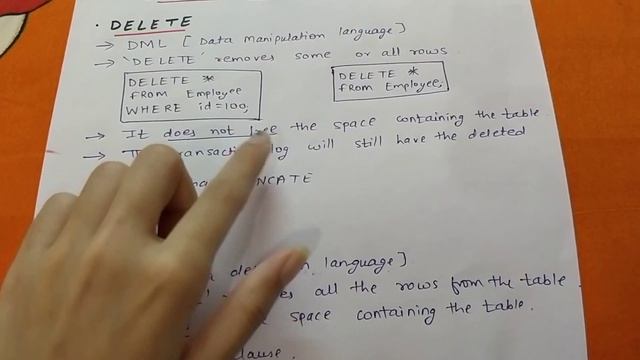 • DELETE
→ DML [Data manipulation language]
→ 'DELETE' removes some or all rows
DELETE *
FROM Employee
WHERE id=100;
DELETE *
from Employee;
→ It does not free the space containing the table
→ log will still have the deleted
language]
all the rows from the table.
space containing the table.
clause.